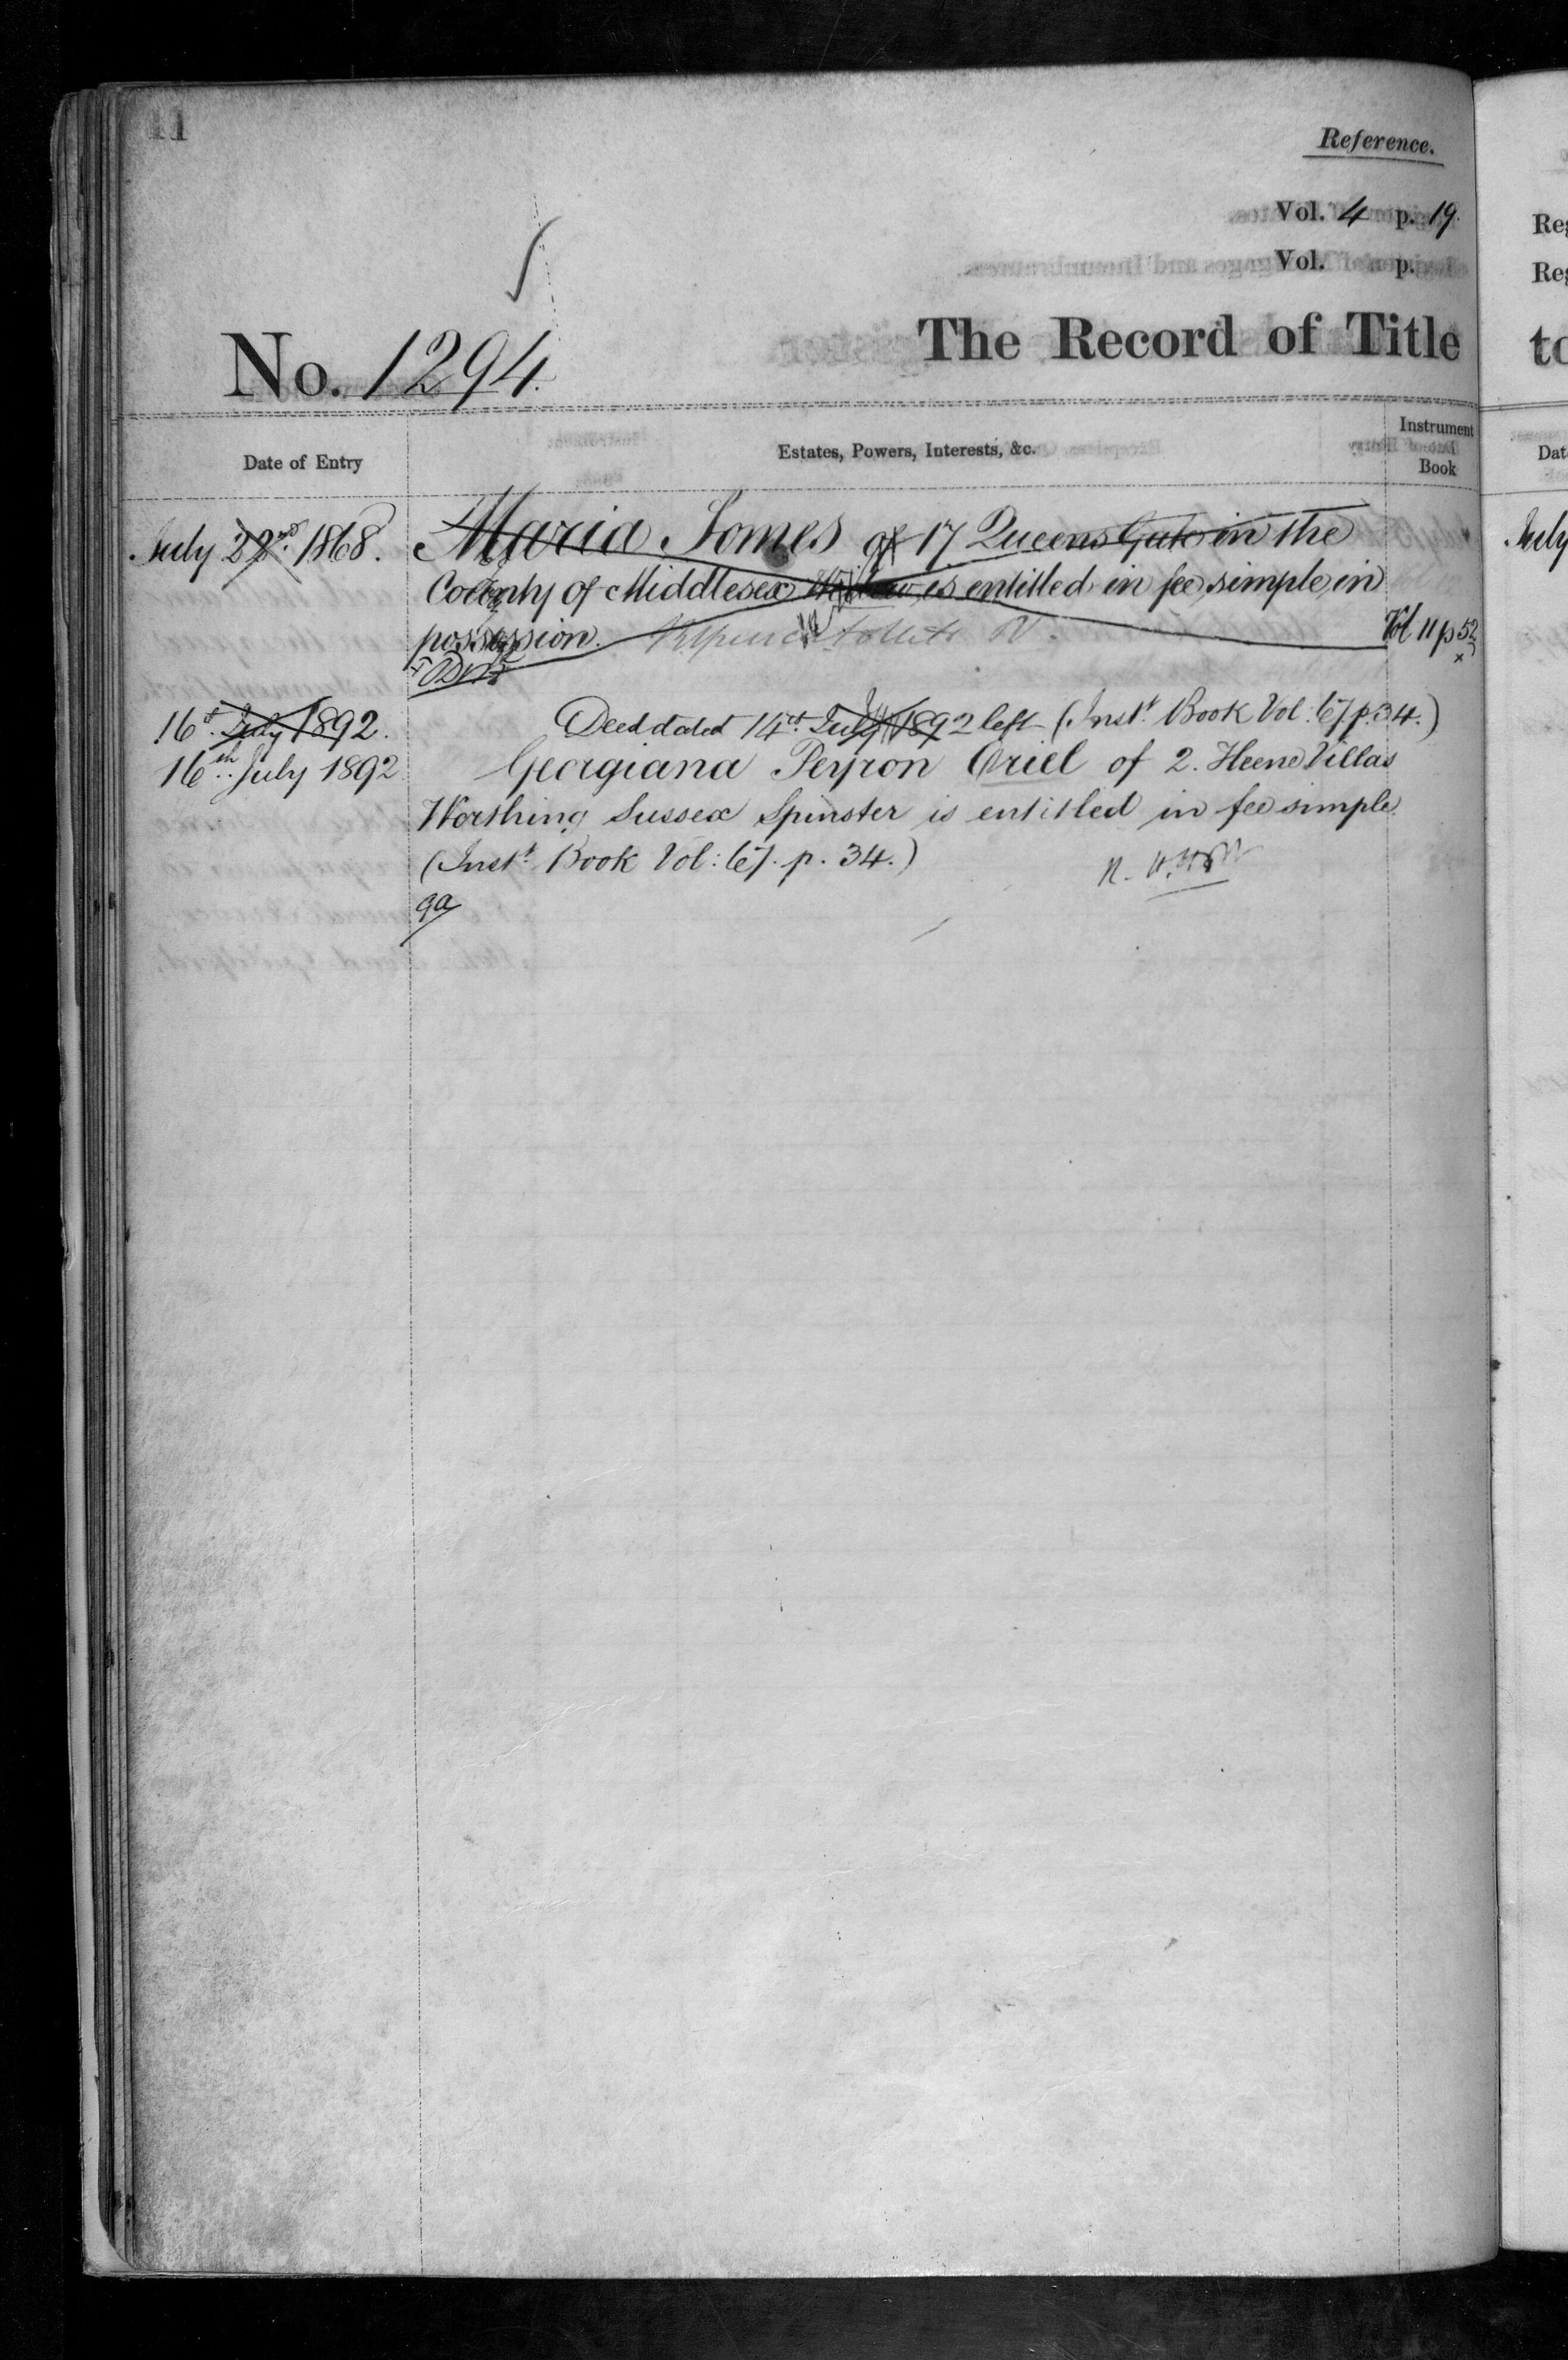 11
Reference.
Vol. 4 p. 19.
Vol. p.
No. 1294.
The Record of Title
Date of Entry
Estates, Powers, Interests, &c.
Instrument
Book
July 22nd 1868. Maria Somes of 17 Queens Gate in the
County of Middlesex Widow is entitled in fee simple in
possession. Vol 11 p 52
16th July 1892. Deed dated 14th July 1892 left (Inst. Book Vol: 67 p. 34.)
16th July 1892 Georgiana Peyron Oriel of 2. Heene Villas
Worthing Sussex Spinster is entitled in fee simple
(Inst. Book Vol: 67. p. 34.)
Reg
Reg
to
Dat
July